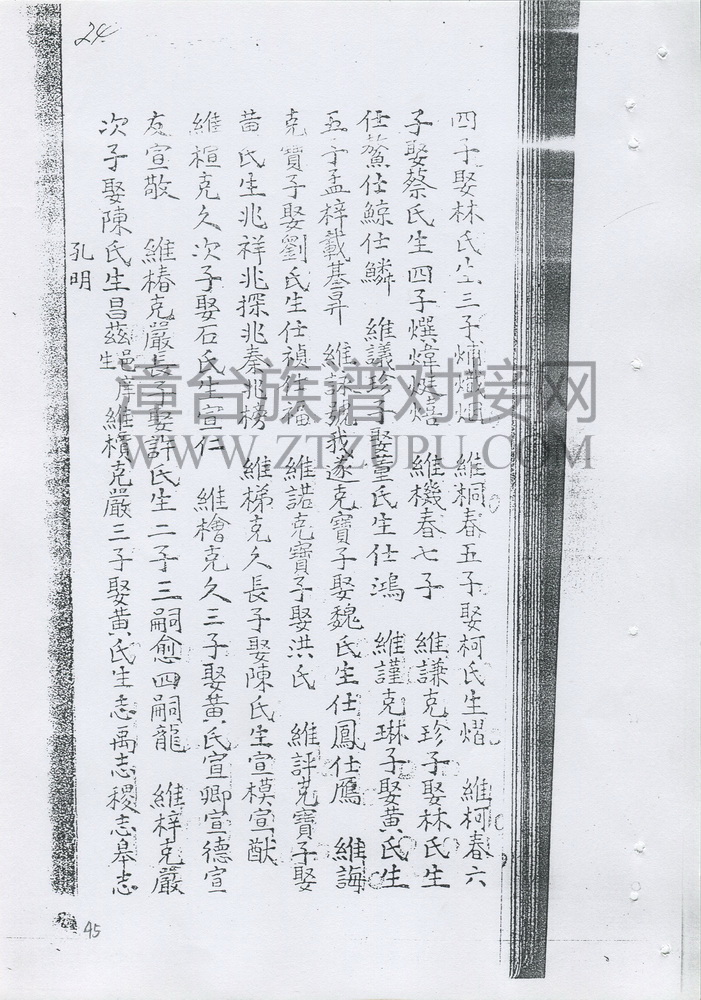 24
四子娶林氏生三子炳熾炯 維桐春五子娶柯氏生熠 維柯春六
子娶蔡氏生四子熼煒烶熺 維機春七子 維謙克珍子娶林氏生
仕鰲仕鯨仕鱗 維議珍子娶董氏生仕鴻 維謹克琳子娶黃氏生
五子孟梓載基昇 維詠號我遂克寶子娶魏氏生仕鳳仕鴈 維誨
克寶子娶劉氏生仕禎仕福 維諾克寶子娶洪氏 維評克寶子娶
黃氏生兆祥兆探兆秦兆榜 維梯克久長子娶陳氏生宣模宣猷
維桓克久次子娶石氏生宣仁 維檜克久三子娶黃氏宣卿宣德宣
友宣敬 維椿克嚴長子娶許氏生二子三嗣愈四嗣龍 維梓克嚴
次子娶陳氏生昌茲邑庠生維檳克嚴三子娶黃氏生志禹志稷志皋志
孔明
45
漳台族谱对接网
WWW.ZTZUPU.COM